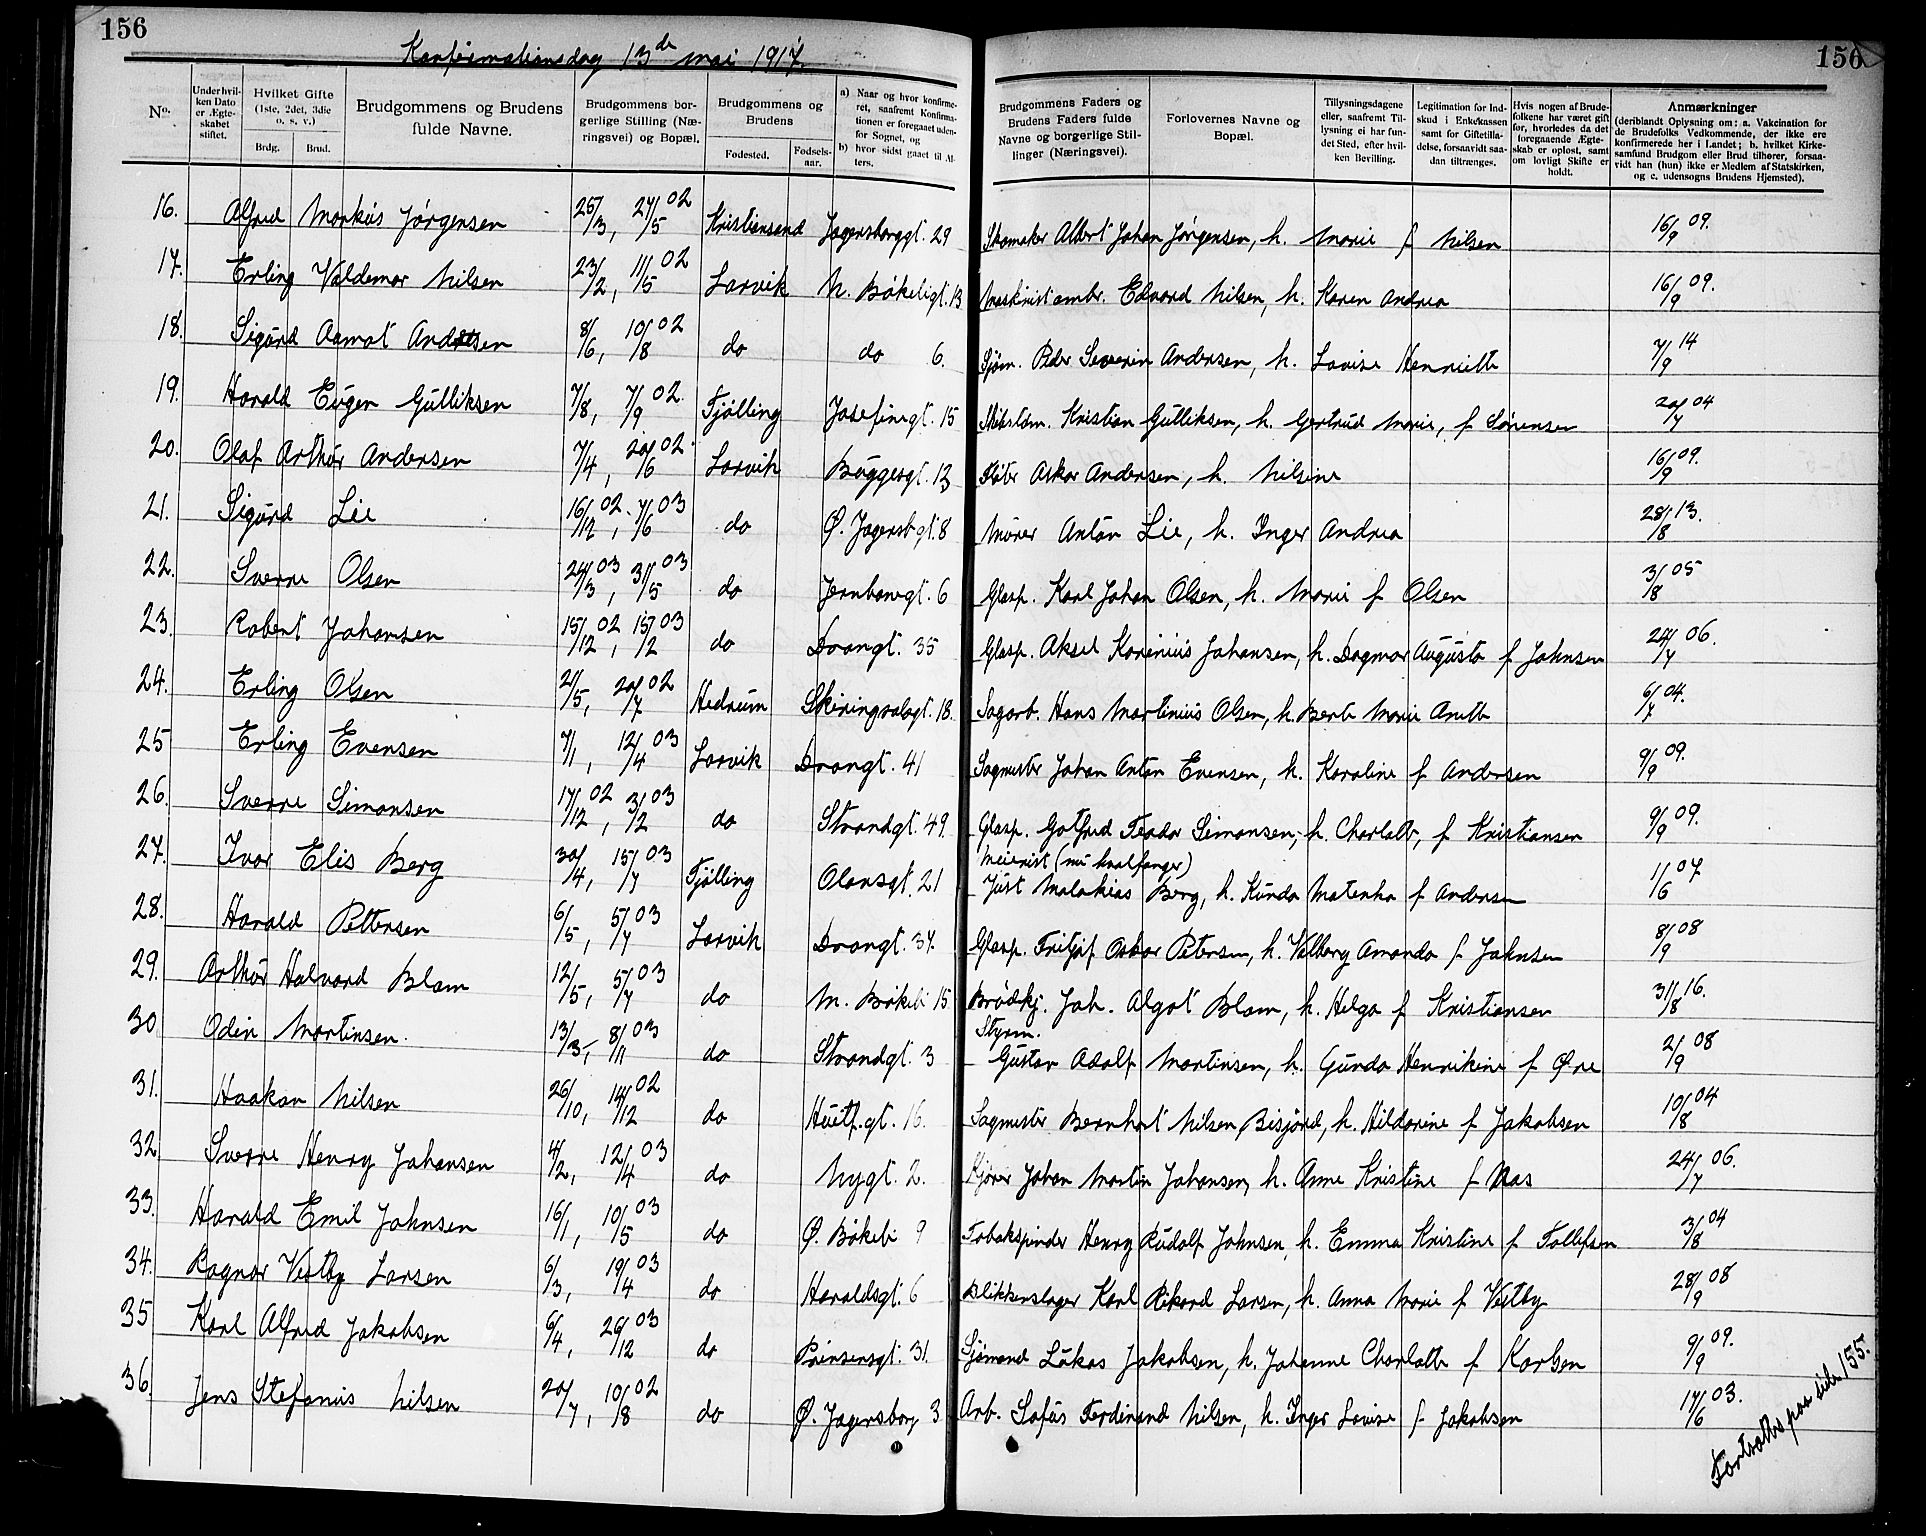 156
156
Konfirmationsdag 13de mai 1917.
No.
Under hvil-
ken Dato
er Ægte-
skabet
stiftet.
Hvilket Gifte
(1ste, 2det, 3die
o. s. v.)
Brdg.
Brud.
Brudgommens og Brudens
fulde Navne.
Brudgommens bor-
gerlige Stilling (Næ-
ringsvei) og Bopæl.
Brudgommens og
Brudens
Fødested.
Fødsels-
aar.
a) Naar og hvor konfirme-
ret, saafremt Konfirma-
tionen er foregaaet uden-
for Sognet, og
b) hvor sidst gaaet til Al-
ters.
Brudgommens Faders og
Brudens Faders fulde
Navne og borgerlige Stil-
linger (Næringsvei).
Forlovernes Navne og
Bopæl.
Tillysningsdagene
eller, saafremt Til-
lysning ei har fun-
det Sted, efter hvil-
ken Bevilling.
Legitimation for Ind-
skud i Enkekassen
samt for Giftetilla-
delse, forsaavidt saa-
dan tiltrænges.
Hvis nogen af Brude-
folkene har været gift
før, hvorledes da det
foregaaende Ægte-
skab er opløst, samt
om lovligt Skifte er
holdt.
Anmærkninger
(deriblandt Oplysning om: a. Vakcination for
de Brudefolks Vedkommende, der ikke ere
konfirmerede her i Landet; b. hvilket Kirke-
samfund Brudgom eller Brud tilhører, forsaa-
vidt han (hun) ikke er Medlem af Statskirken,
og c. udensogns Brudens Hjemsted).
16. Alfred Markus Jørgensen 25/3, 27/5 02 Kristiansand Jagersborggt. 29 Skomaker Albert Johan Jørgensen, h. Marie f Nilsen 16/9 09.
17. Erling Valdemar Nilsen 23/2, 11/5 02 Larvik N. Bökeligt. 13 Maskinistambr. Edvard Nilsen, h. Karen Andrea 16/9 09.
18. Sigurd Aamot Andersen 8/6, 10/8 02 do do 6. Sjøm. Peder Severin Andersen, h. Lovise Henriette 7/9 14
19. Harald Eugen Gulliksen 7/8, 7/9 02. Tjölling Josefinegt. 15 Kristian Gulliksen, h. Gertrud Marie, f Sørensen 20/7 04
20. Olaf Arthur Andersen 7/4, 20/6 02. Larvik Buggesgt. 13 Fløter Oskar Andersen, h. Nilsine 16/9 09.
21. Sigurd Lie 16/12 02, 7/6 03 do Ø. Jagersbgt. 8 Murer Anton Lie, h. Inger Andrea 28/8 13.
22. Sverre Olsen 24/3 03, 31/5 03 do Jernbanegt. 6 Glasp. Karl Johan Olsen, h. Marie f Olsen 3/8 05
23. Robert Johansen 15/12 02, 15/2 03 do Dronngt. 35 Glasp. Aksel Karenius Johansen, h. Dagmar Augusta f Johnsen 24/7 06.
24. Erling Olsen 2/5, 20/7 02 Hedrum Skiringsalsgt. 18. Sagarb. Hans Martinius Olsen, h. Berte Marie Anette 6/7 04.
25 Erling Evensen 7/1, 12/4 03 Larvik Dronngt. 41 Sagmester Johan Anton Evensen, h. Karoline f Andersen 9/9 09.
26. Sverre Simonsen 17/12 02, 3/2 03 do Strandgt. 49 Glasp. Gotfred Teodor Simonsen, h. Charlotte, f Kristiansen 9/9 09.
27. Ivar Elis Berg 30/4, 15/7 03 Tjölling Olavsgt. 21 Meierist (nu hvalfanger) Just Malakias Berg, h. Kunda Matenka f Andersen 1/6 07
28. Harald Pettersen 6/5, 5/7 03 Larvik Dronngt. 37. Glasp. Fritjof Oskar Petersen, h. Valborg Amanda f Johnsen 8/9 08
29. Arthur Halvard Blom 12/5, 5/7 03 do M. Bökeli 15 Brödkj. Joh. Algot Blom, h. Helga f Kristiansen 31/8 16.
30 Odin Martinsen. 13/3, 8/11 03 do Strandgt. 3 Styrm. Gustav Adolf Martinsen, h. Gunda Henrikine f Øre 2/9 08
31. Haakon Nilsen 26/10, 14/12 02 do Huitf.gt. 16. Sagmester Bernhart Nilsen Bisjörd, h. Hildarine f Jakobsen 10/8 04
32 Sverre Henry Johansen 4/2, 12/4 03 do Nygt. 2. Kjører Johan Martin Johansen, h. Anne Kristine f Aas 24/7 06.
33. Harald Emil Johnsen 16/1, 10/5 03 do Ø. Bökeli 9 Tobakspinder Henry Rudolf Johnsen, h. Emma Kristine f Tollefsen 3/8 04
34. Ragnar Vestby Larsen 6/3, 19/4 03 do Haraldsgt. 6 Blikkenslager Karl Rikard Larsen, h. Anna Marie f Vestby 28/9 08
35 Karl Alfred Jakobsen 6/4, 26/12 03 do Prinsensgt. 31. Sjømand Lukas Jakobsen, h. Johanne Charlotte f Karlsen 9/9 09.
36. Jens Stefanius Nilsen 20/7, 10/8 02 do Ø. Jagersborg 3 Arb. Sofus Ferdinand Nilsen, h. Inger Lovise f Jakobsen 17/6 03.
Fortsættes paa side 155.